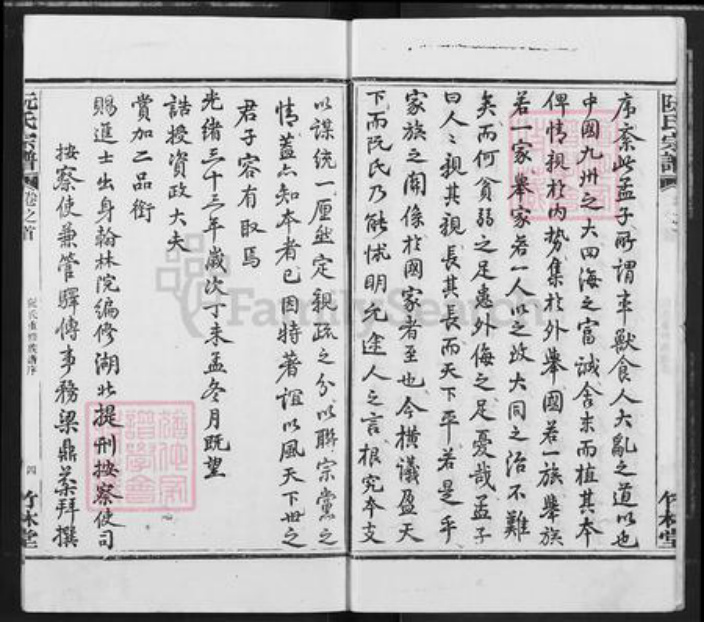 阮氏宗譜
竹林堂
序紊此孟子所謂率獸食人大亂之道以也
中國九州之大四海之富誠舍末而植其本
俾情親於內勢集於外舉國若一族舉族
若一家舉家若一人以之攻大同之治不難
矣而何貧弱之足患外侮之足憂哉孟子
曰人人親其親長其長而天下平若是乎
家族之關係於國家者至也今橫議盈天
下而阮氏乃能怵明允途人之言根究本支
以謀統一厘然定親疏之分以聯宗黨之
情蓋亦知本者已因特著誼以風天下世之
君子容有取焉
光緒三十三年歲次丁未孟冬月既望
誥授資政大夫
賞加二品銜
賜進士出身翰林院編修湖北提刑按察使司
按察使兼管驛傳事務梁鼎棻拜撰
阮氏宗譜
卷之首
四
竹林堂
FamilySearch